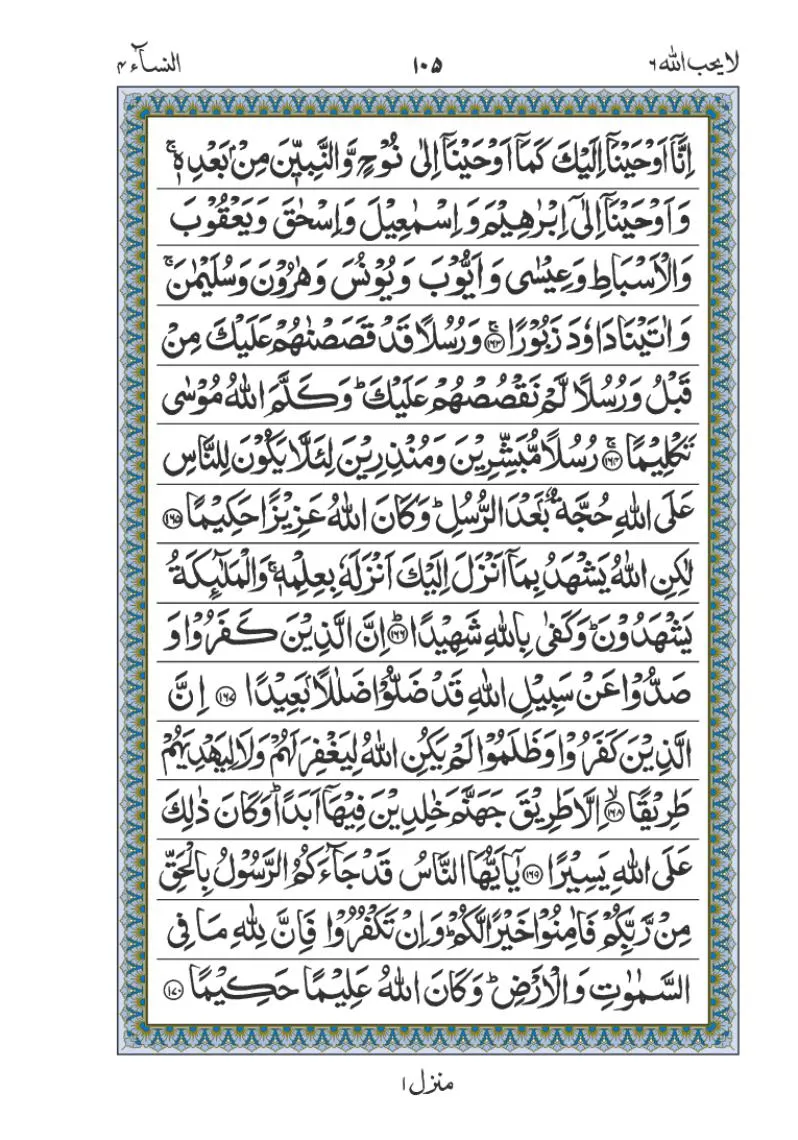 لا يحب الله ٦
١٠٥
النسآء ٤
اِنَّاۤ اَوْحَيْنَاۤ اِلَيْكَ كَمَاۤ اَوْحَيْنَاۤ اِلٰى نُوْحٍ وَّالنَّبِيّٖنَ مِنْۢ بَعْدِهٖ ۚ
وَ اَوْحَيْنَاۤ اِلٰۤى اِبْرٰهِيْمَ وَ اِسْمٰعِيْلَ وَ اِسْحٰقَ وَ يَعْقُوْبَ
وَالْاَسْبَاطِ وَ عِيْسٰى وَ اَيُّوْبَ وَ يُوْنُسَ وَ هٰرُوْنَ وَ سُلَيْمٰنَ ۚ
وَ اٰتَيْنَا دَاوٗدَ زَبُوْرًا ۚ ﴿۱۶۳﴾ وَ رُسُلًا قَدْ قَصَصْنٰهُمْ عَلَيْكَ مِنْ
قَبْلُ وَ رُسُلًا لَّمْ نَقْصُصْهُمْ عَلَيْكَ ؕ وَ كَلَّمَ اللّٰهُ مُوْسٰى
تَكْلِيْمًا ۚ ﴿۱۶۴﴾ رُسُلًا مُّبَشِّرِيْنَ وَ مُنْذِرِيْنَ لِئَلَّا يَكُوْنَ لِلنَّاسِ
عَلَى اللّٰهِ حُجَّةٌۢ بَعْدَ الرُّسُلِ ؕ وَ كَانَ اللّٰهُ عَزِيْزًا حَكِيْمًا ﴿۱۶۵﴾
لٰكِنِ اللّٰهُ يَشْهَدُ بِمَاۤ اَنْزَلَ اِلَيْكَ اَنْزَلَهٗ بِعِلْمِهٖ ۚ وَالْمَلٰٓئِكَةُ
يَشْهَدُوْنَ ؕ وَ كَفٰى بِاللّٰهِ شَهِيْدًا ؕ ﴿۱۶۶﴾ اِنَّ الَّذِيْنَ كَفَرُوْا وَ
صَدُّوْا عَنْ سَبِيْلِ اللّٰهِ قَدْ ضَلُّوْا ضَلٰلًۢا بَعِيْدًا ﴿۱۶۷﴾ اِنَّ
الَّذِيْنَ كَفَرُوْا وَ ظَلَمُوْا لَمْ يَكُنِ اللّٰهُ لِيَغْفِرَ لَهُمْ وَلَا لِيَهْدِيَهُمْ
طَرِيْقًا ۙ ﴿۱۶۸﴾ اِلَّا طَرِيْقَ جَهَنَّمَ خٰلِدِيْنَ فِيْهَاۤ اَبَدًا ؕ وَ كَانَ ذٰلِكَ
عَلَى اللّٰهِ يَسِيْرًا ﴿۱۶۹﴾ يٰۤاَيُّهَا النَّاسُ قَدْ جَآءَكُمُ الرَّسُوْلُ بِالْحَقِّ
مِنْ رَّبِّكُمْ فَاٰمِنُوْا خَيْرًا لَّكُمْ ؕ وَ اِنْ تَكْفُرُوْا فَاِنَّ لِلّٰهِ مَا فِى
السَّمٰوٰتِ وَالْاَرْضِ ؕ وَ كَانَ اللّٰهُ عَلِيْمًا حَكِيْمًا ﴿۱۷۰﴾
منزل ١